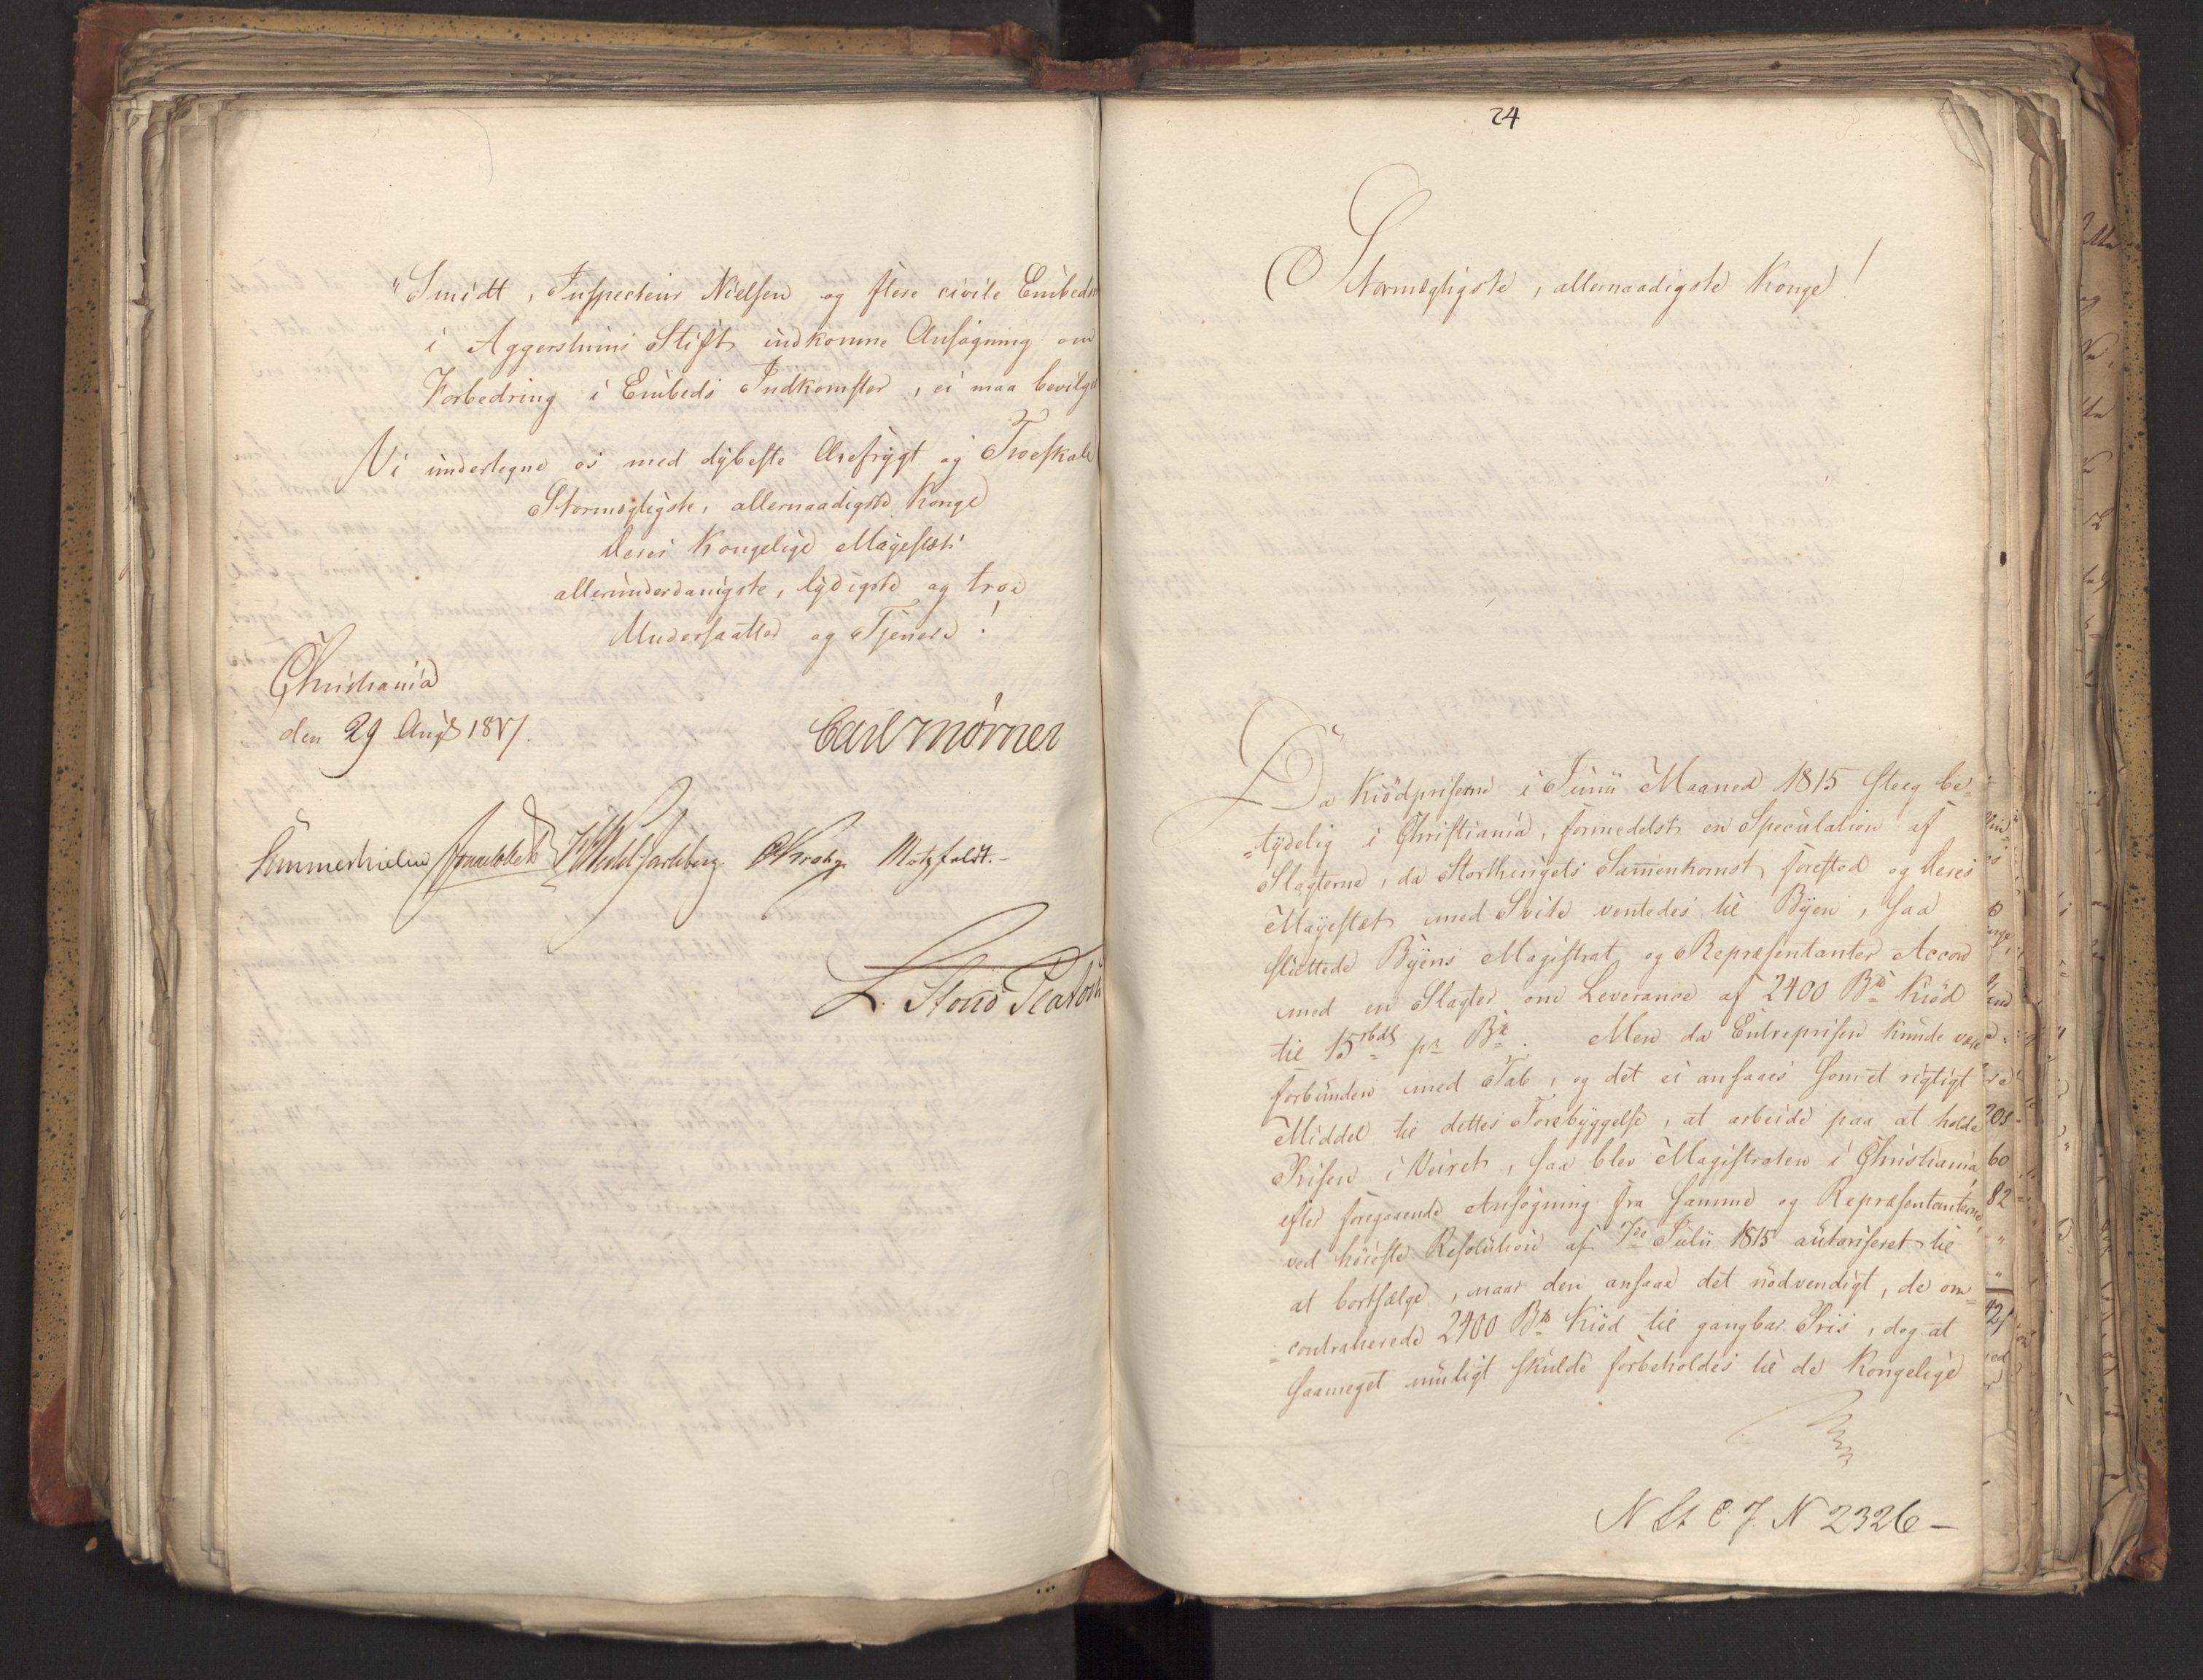 "Smidt, Inspecteur Nielsen og flere civile Embedsm
i Aggershuus Stift indkomne Ansøgning om
Forbedring i Embeds Indkomster, ei maa bevilges
Vi undertegne os med dybeste Ærefrygt og Troeskab
Stormægtigste, allernaadigste Konge
Deres Kongelige Mayestæts
allerunderdanigste, lydigste og troe
Undersaatter og Tjenere!
Christiania
den 29 Augt 1817.
Carl Mørner
Sommerhielm HWedel Jarlsberg CKrohg. Motzfeldt.-
L. Stoud Platou
24
Stormægtigste, allernaadigste Konge!
Da Kiödpriserne i Junii Maaned 1815 steeg be-
-tydelig i Christiania, formedelst en Speculation af
Slagterne, da Storthingets Sammenkomst forestod og Deres
Mayestæt med Svite ventedes til Byen, saa
sluttede Byens Magistrat og Repræsentanter Accord
med en Slagter om Leverance af 2400 B℔ Kiød
til 15 rbdl pr B℔. Men da Entreprisen kunde være
forbunden med Tab, og det ei ansaaes som et rigtigt
Middel til dettes Forebyggelse, at arbeide paa at holde
Prisen i Veiret, saa blev Magistraten i Christiania,
efter foregaaende Ansøgning fra samme og Repræsentanterne,
ved høieste Resolution af 7de Julii 1815 autoriseret til
at bortsælge, naar den ansaae det nødvendigt, de om-
-contraherede 2400 B℔ Kiød til gangbar Priis, dog at
saameget muligt skulde forbeholdes til de Kongelige
N St C J N 2326-